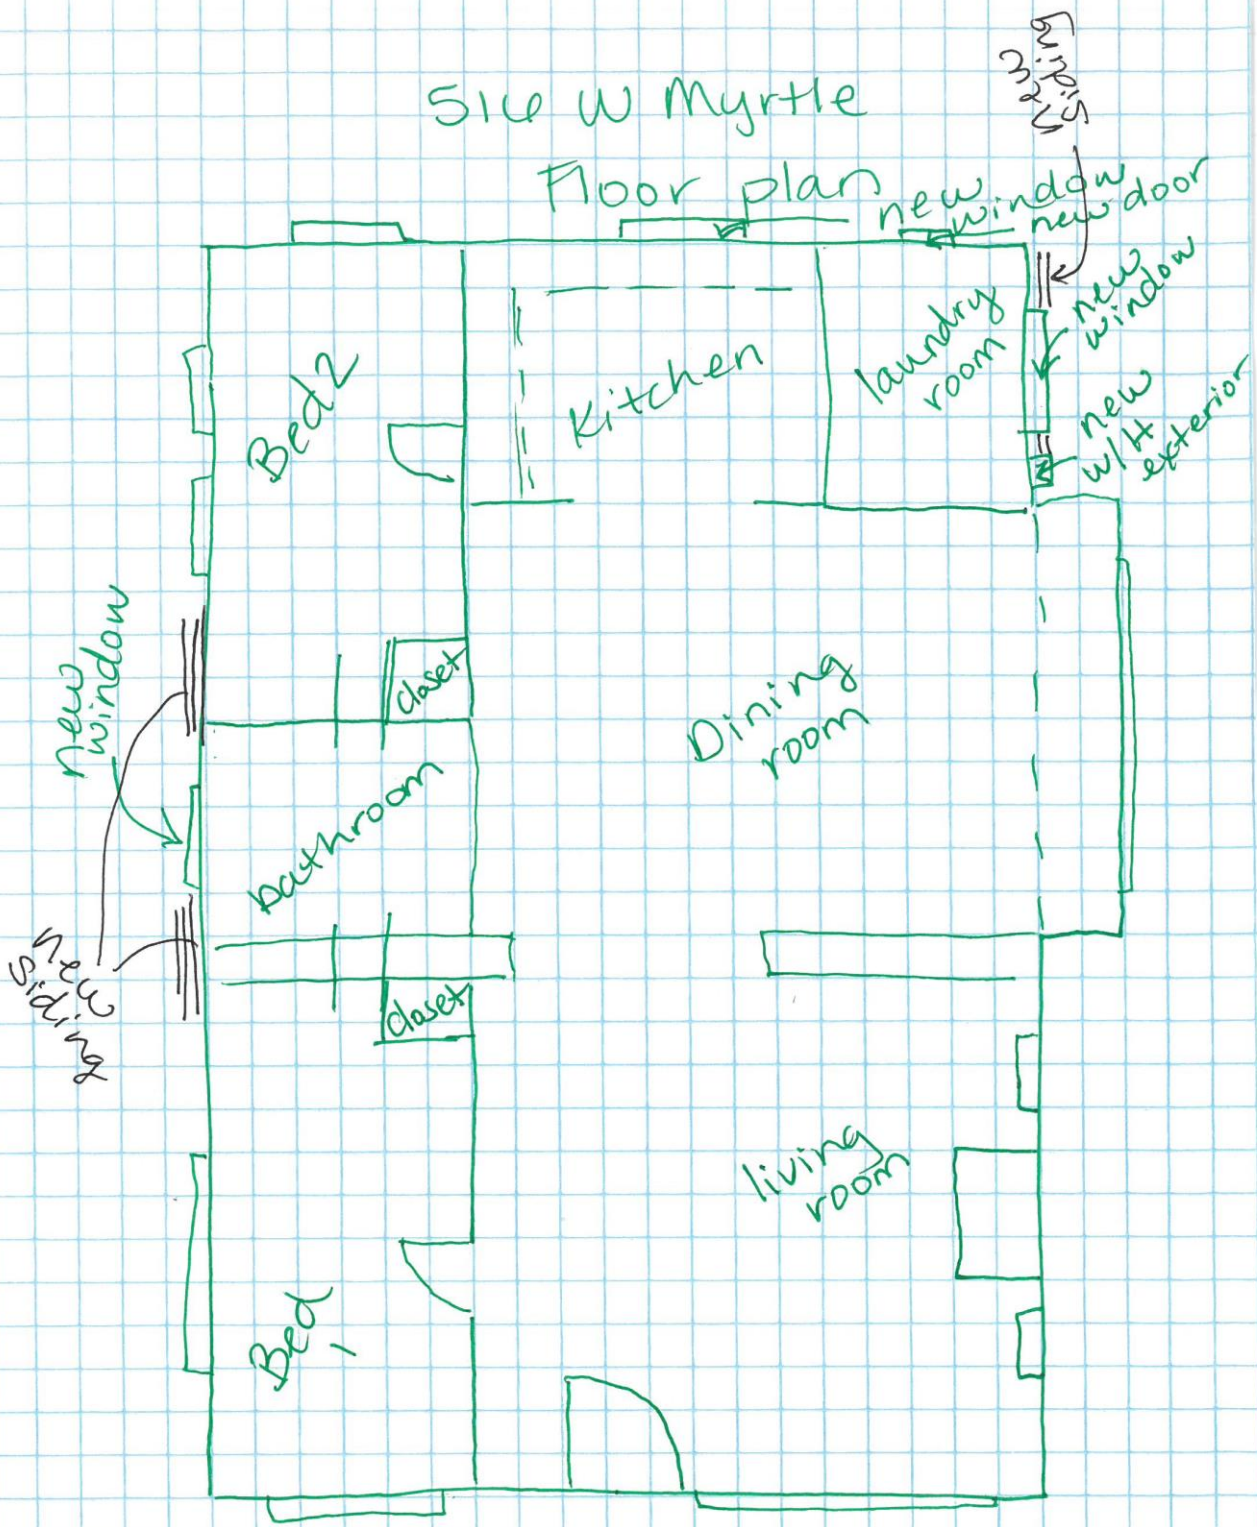 516 W Myrtle
Floor plan
new
siding
new
window
new door
new
window
new
w/H
exterior
laundry
room
Kitchen
Bed 2
closet
new
window
Dining
room
bathroom
new
siding
closet
living
room
Bed
1